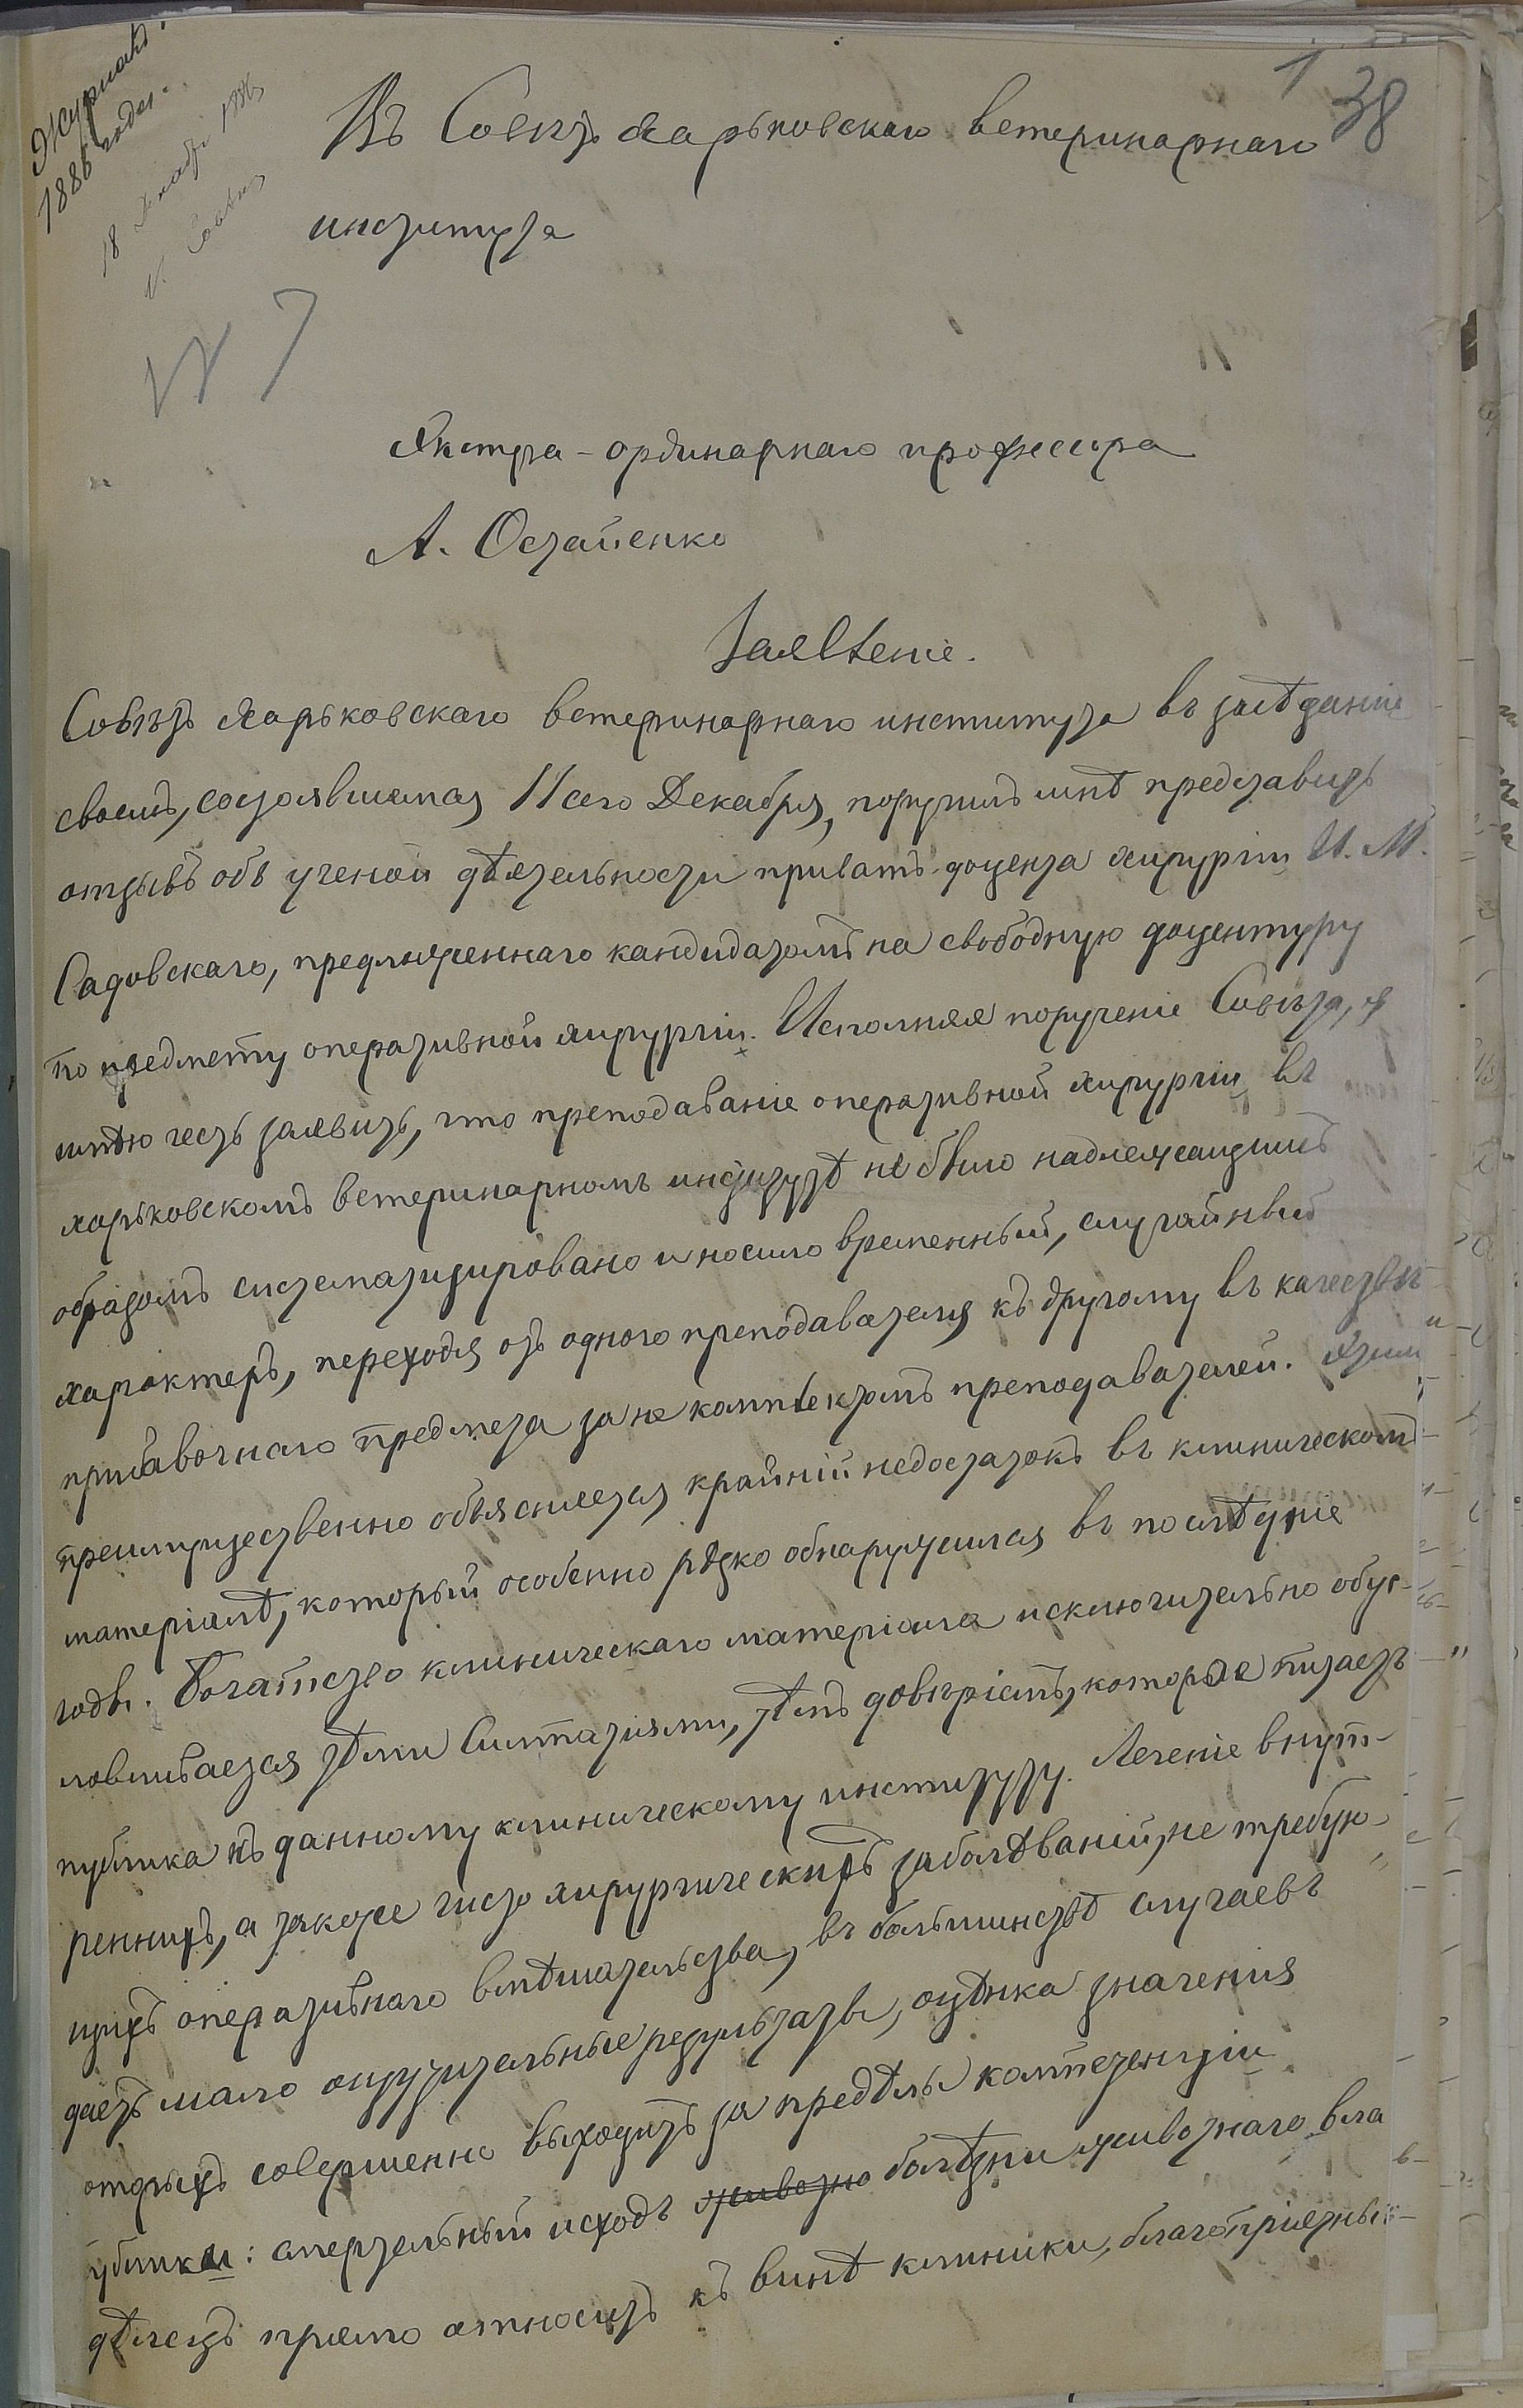 Журналъ
1886 года.
18 Декабря 1886
В. Совѣтъ
1 38
Въ Совѣтъ Харьковскаго ветеринарнаго
института
№ 7
Экстра-ординарнаго профессора
А. Остапенко
Заявленіе.
Совѣтъ Харьковскаго ветеринарнаго института въ засѣданіе
своемъ, состоявшемся 11 сего Декабря, поручилъ мнѣ представить
отзывъ объ ученой дѣятельности приватъ-доцента хирургіи И. М.
Садовскаго, предложеннаго кандидатомъ на свободную доцентуру
по предмету оперативной хирургіи. Исполняя порученіе Совѣта, я
имѣю честь заявить, что преподаваніе оперативной хирургіи въ
харьковскомъ ветеринарномъ институтѣ не было надлежащимъ
образомъ систематизировано и носило временный, случайный
характеръ, переходя отъ одного преподавателя къ другому въ качествѣ
прибавочнаго предмета за не комплектомъ преподавателей. Этимъ
преимущественно объясняется крайній недостатокъ въ клиническомъ
матеріалѣ, который особенно рѣзко обнаружился въ послѣдніе
годы. Богатство клиническаго матеріала исключительно обус-
ловливается тѣми симпатіями, тѣмъ довѣріемъ, которые питаетъ
публика къ данному клиническому институту. Леченіе внут-
реннихъ, а также чисто хирургическихъ заболѣваній, не требую-
щихъ оперативнаго вмѣшательства, въ большинствѣ случаевъ
даетъ мало ощутительные результаты, оцѣнка значенія
оторыхъ совершенно выходитъ за предѣлы компетенціи
ублики: смертельный исходъ животно болѣзни животнаго вла
дѣлецъ прямо относитъ къ винѣ клиники, благопріятный